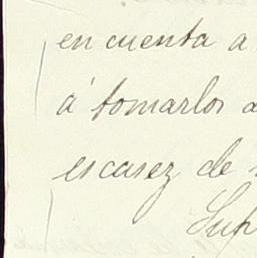 en cuenta a
á tomarlos
escasez de
Sup